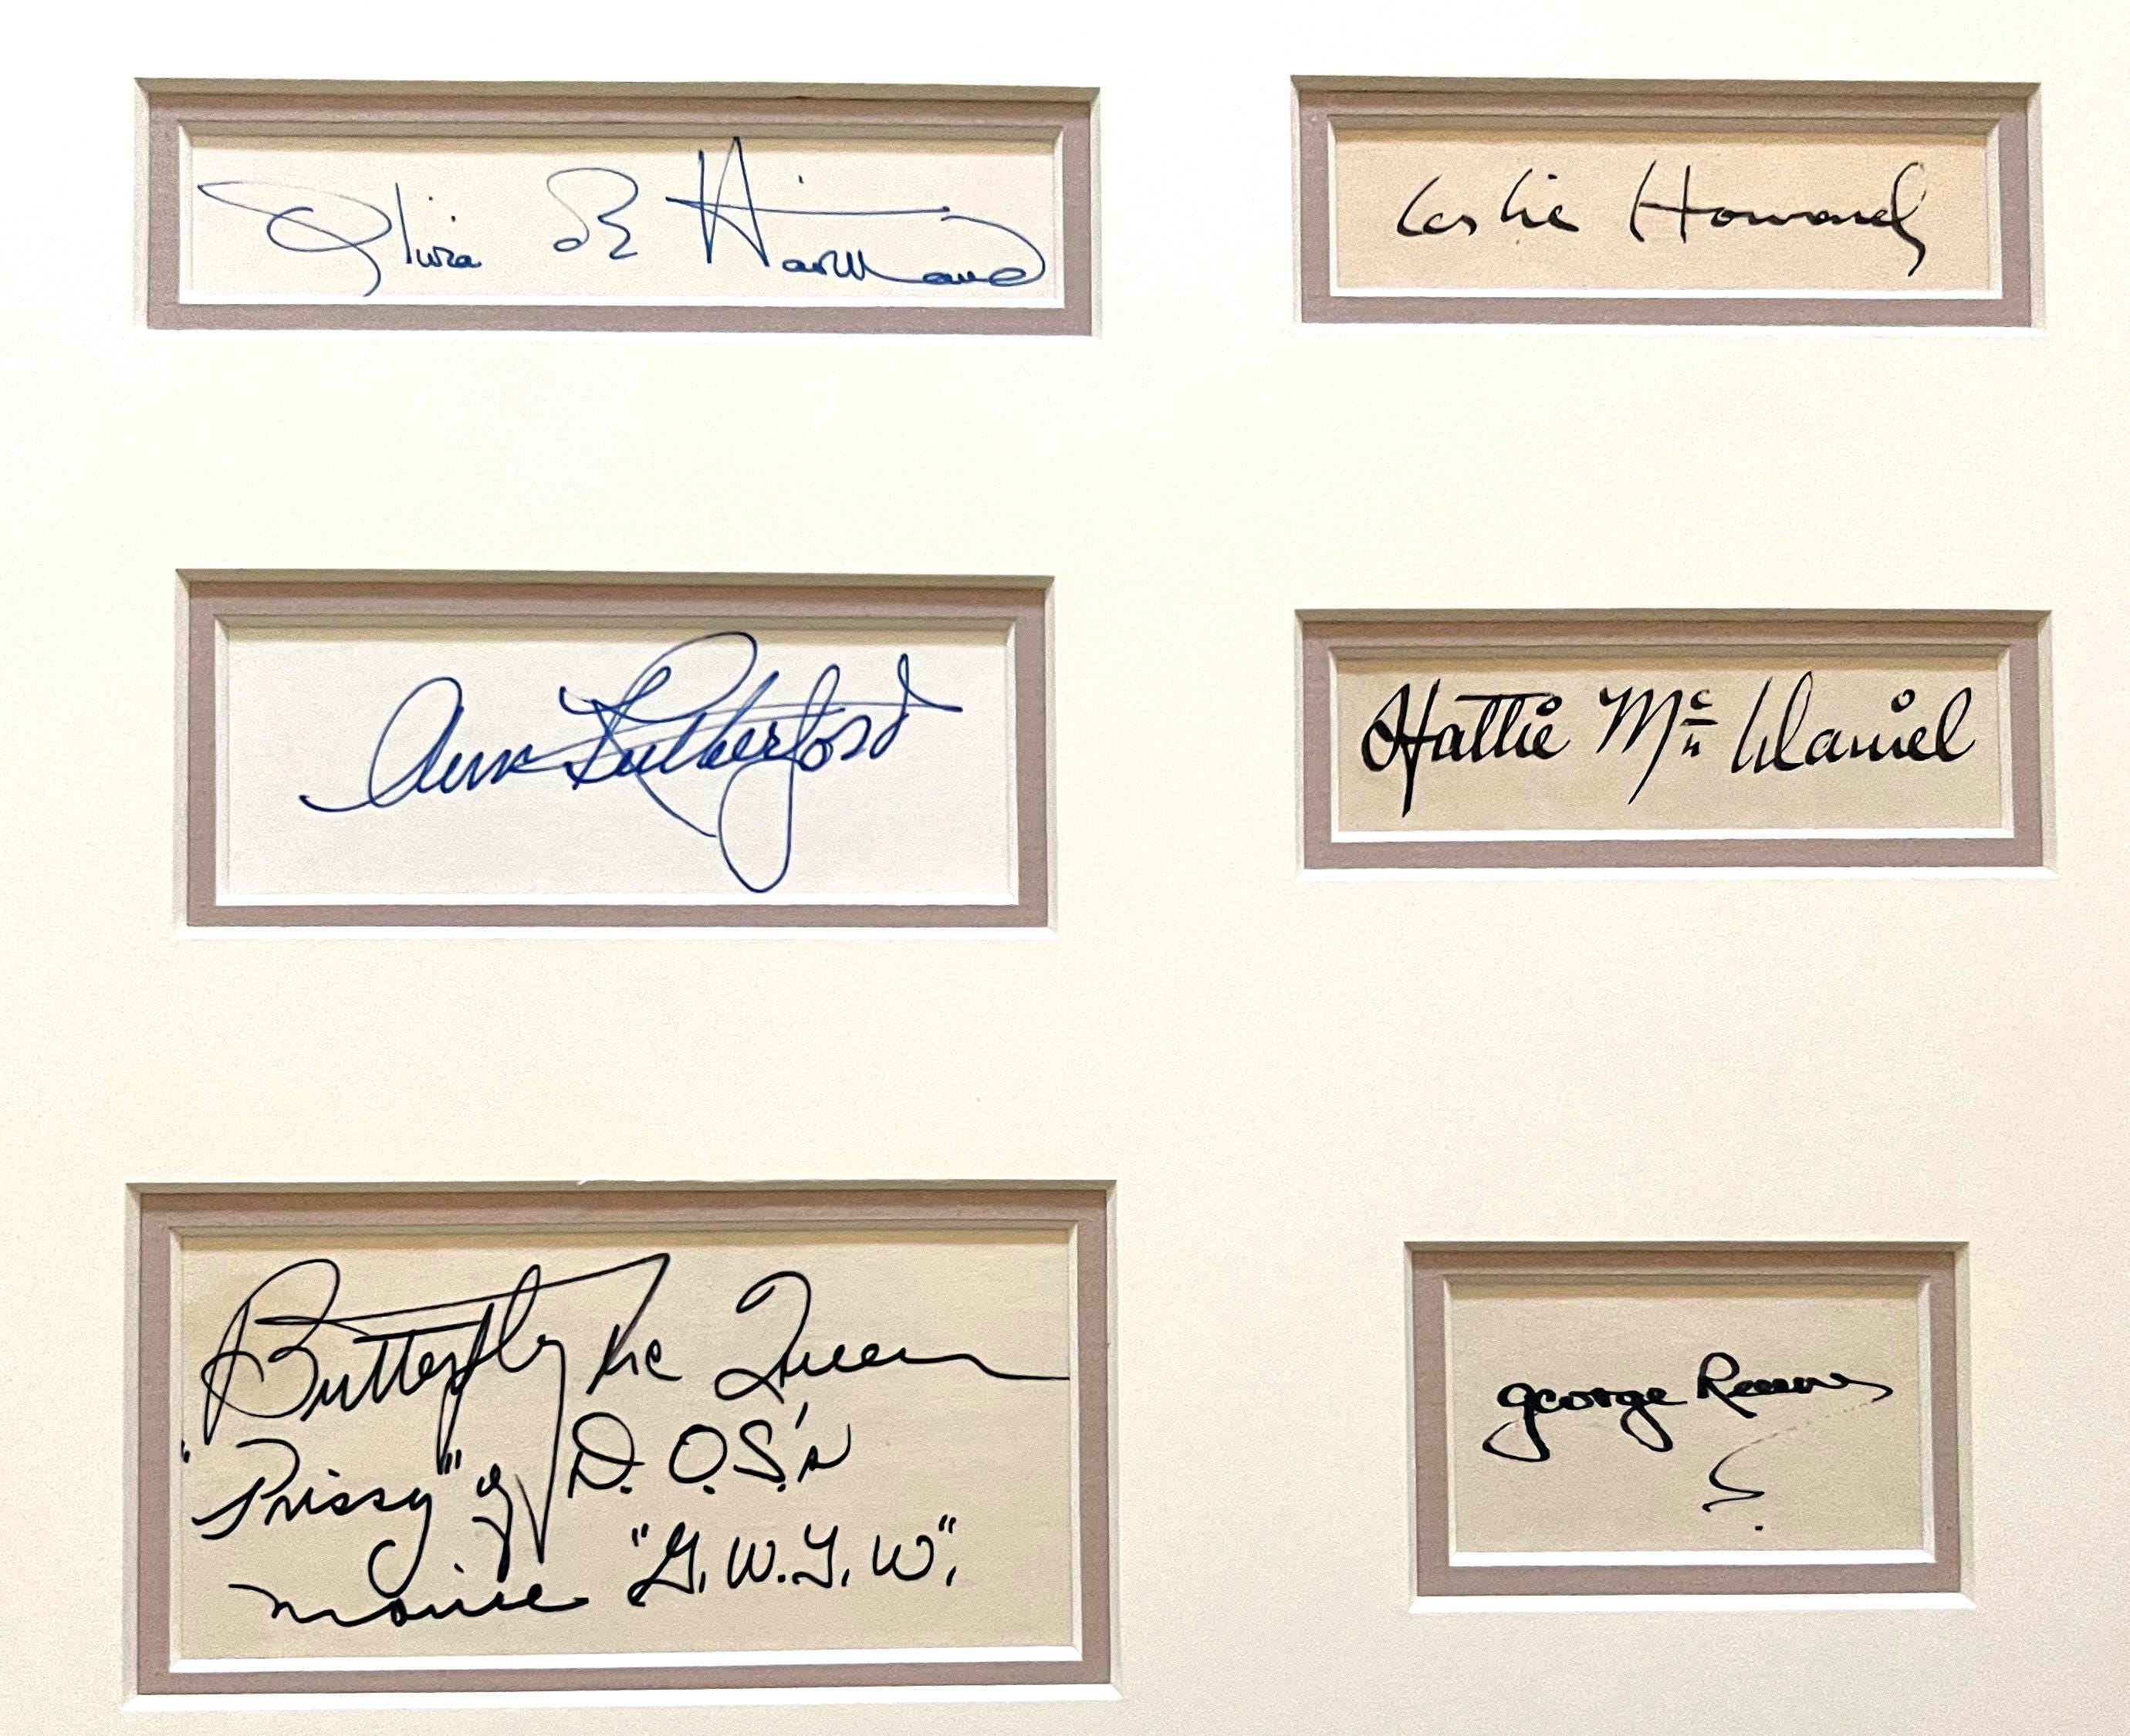 Olivia de Havilland
Leslie Howard
Ann Rutherford
Hattie McDaniel
Butterfly McQueen
"Prissy" of D.O.S.'s
movie "G.W.T.W".
George Reeves